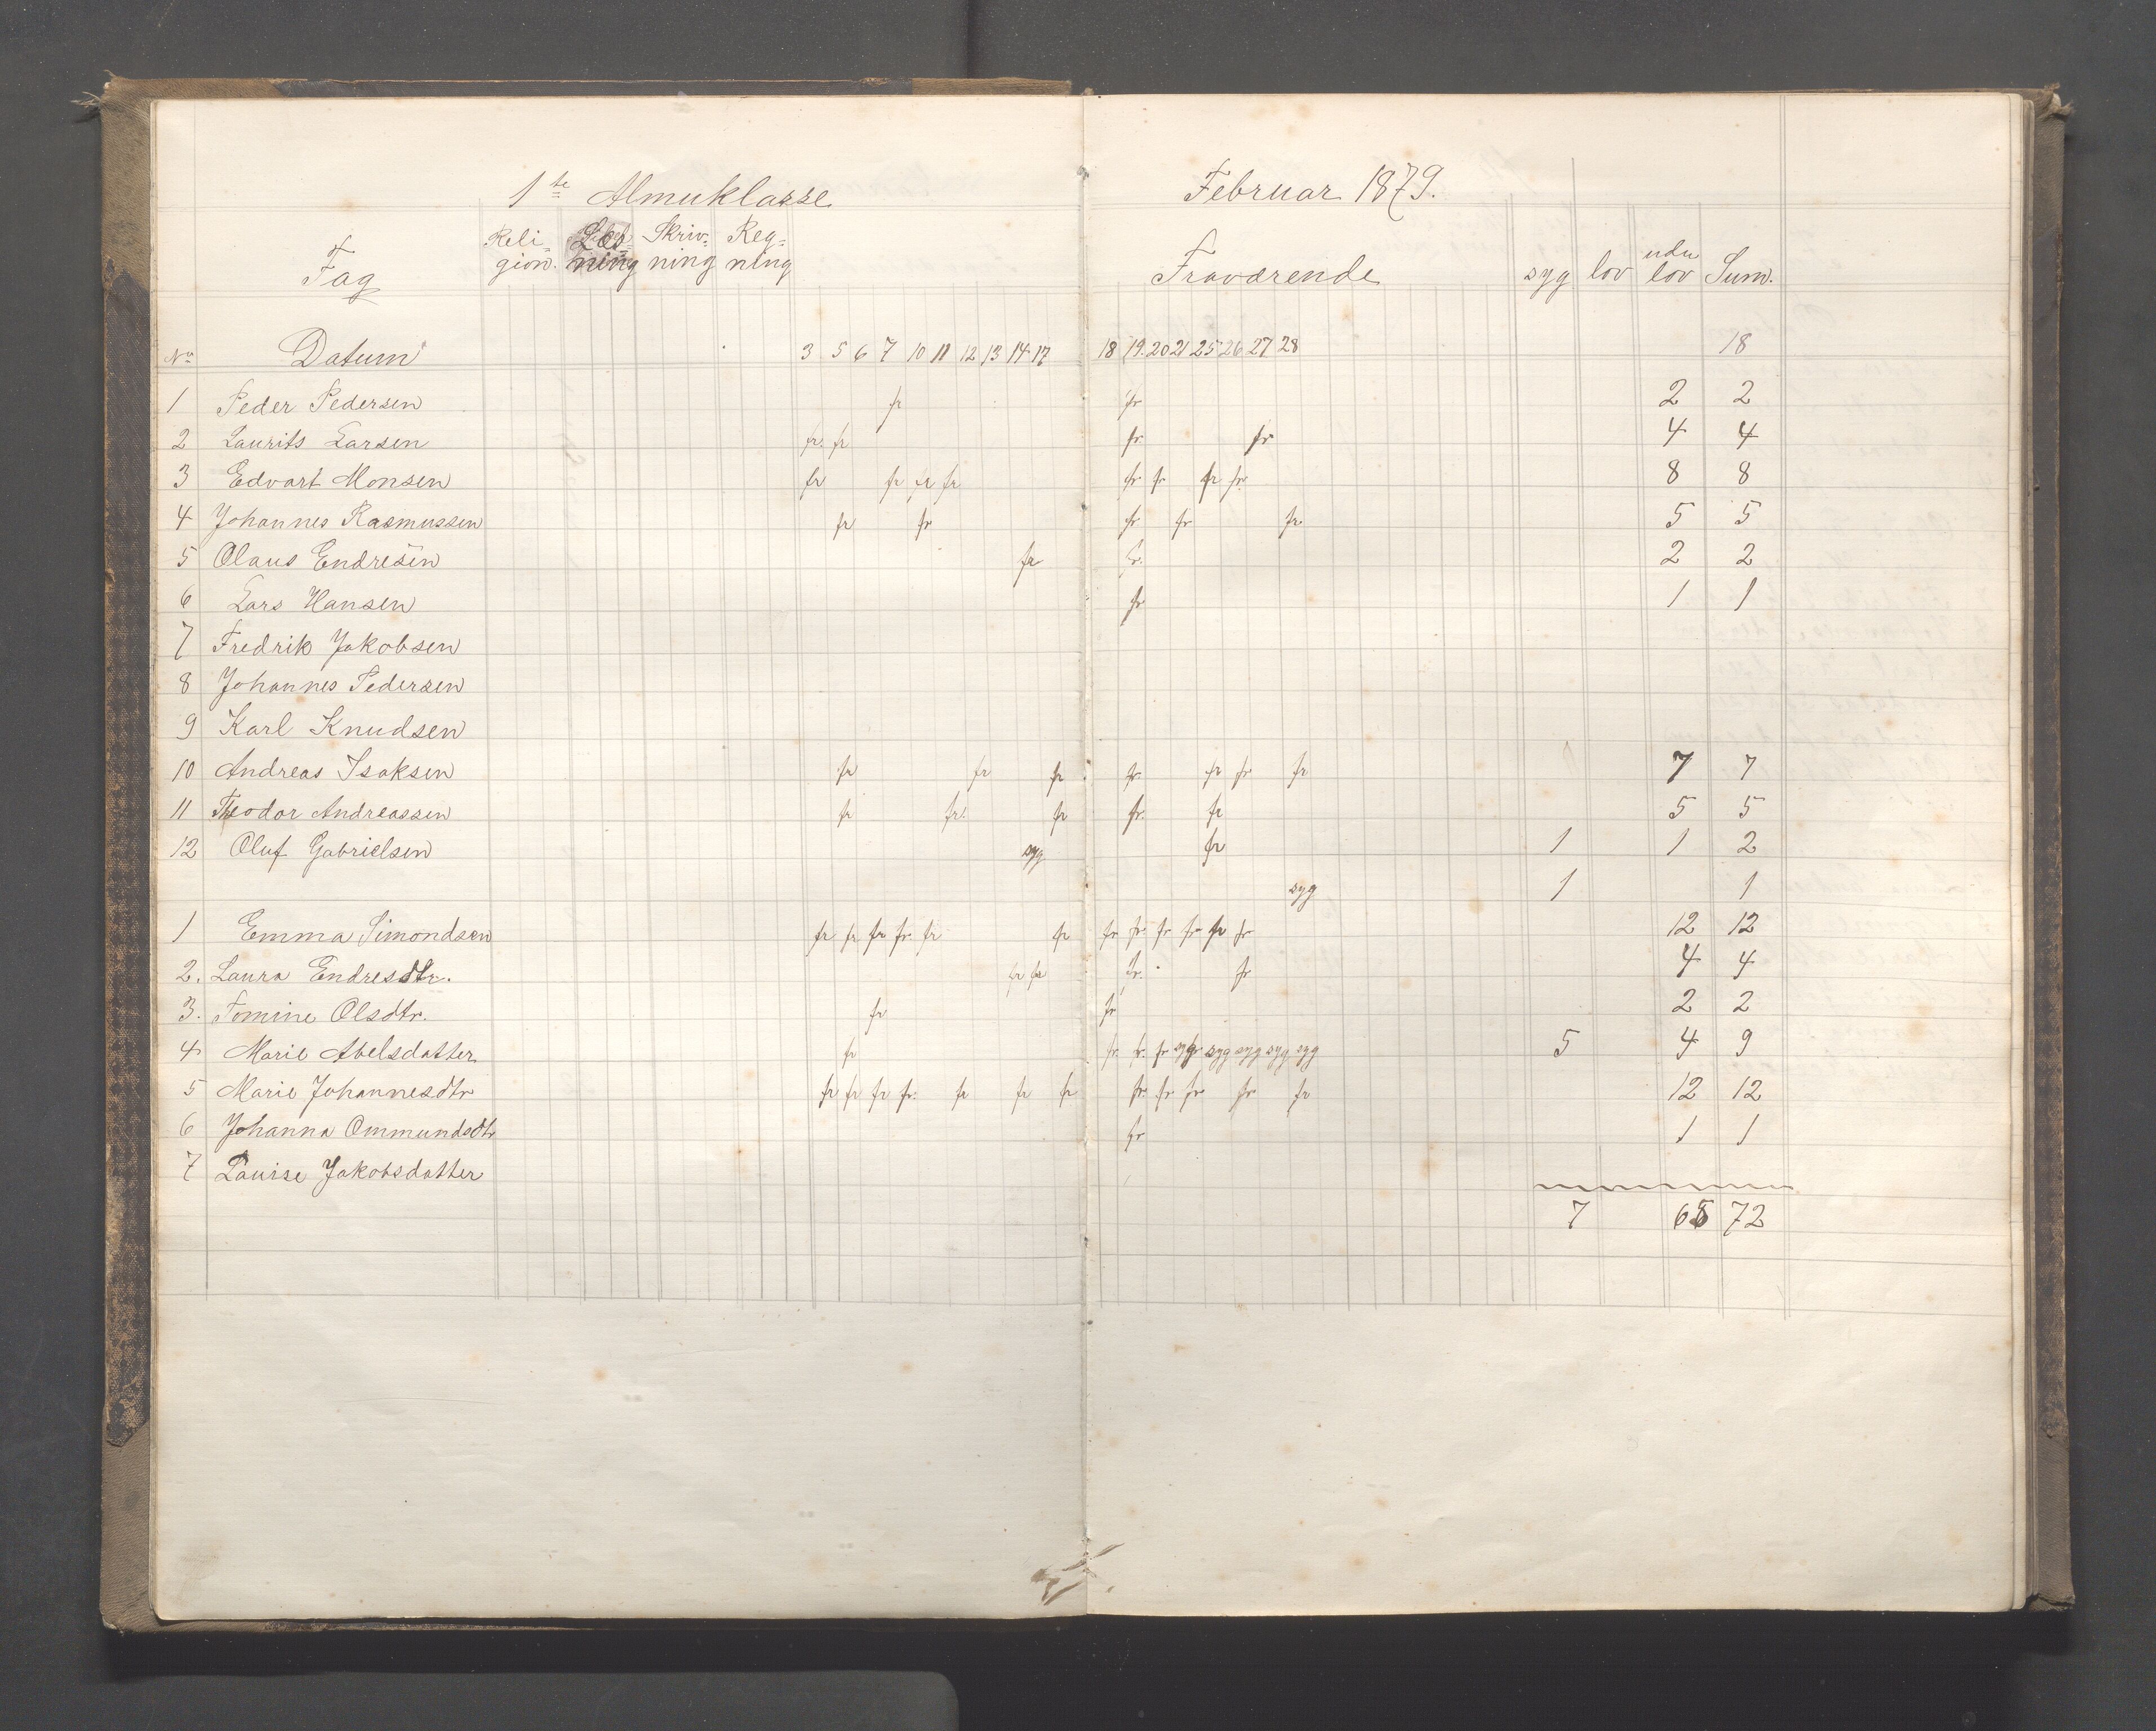 1te Almuklasse Februar 1879.
Fag Religion. Læsning Skrivning Regning Fraværende syg lov uden lov Sum.
No Datum 3 5 6 7 10 11 12 13 14 17 18 19. 20 21 25 26 27 28 18
1 Peder Pedersen fr fr 2 2
2 Laurits Larsen fr. fr fr fr 4 4
3 Edvart Monsen fr fr fr fr fr fr fr fr. 8 8
4 Johannes Rasmussen fr fr fr fr fr. 5 5
5 Olaus Endresen fr fr. 2 2
6 Lars Hansen fr 1 1
7 Fredrik Jakobsen
8 Johannes Pedersen
9 Karl Knudsen
10 Andreas Isaksen fr fr fr fr. fr fr fr 7 7
11 Theodor Andreassen fr fr. fr fr. fr 5 5
12 Oluf Gabrielsen syg fr 1 1 2
syg 1 1
1 Emma Simondsen fr fr fr fr. fr fr fr fr. fr fr fr fr 12 12
2. Laura Endresdtr. fr fr fr. fr 4 4
3. Tomine Olsdtr. fr fr 2 2
4 Marie Abelsdatter fr fr. fr. fr syg syg syg syg syg 5 4 9
5 Marie Johannesdtr fr fr fr fr. fr fr fr fr. fr fr fr fr 12 12
6 Johanna Ommundsdtr fr 1 1
7 Lauise Jakobsdatter
7 65 72